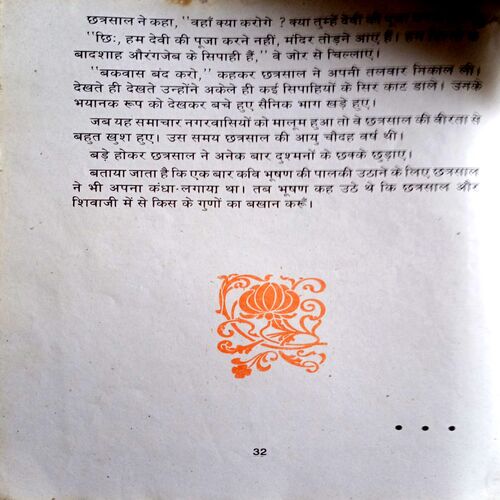 छत्रसाल ने कहा, "वहाँ क्या करोगे ? क्या तुम्हें देवी की पूजा
"छिः, हम देवी की पूजा करने नहीं, मंदिर तोड़ने आए हैं। हम
बादशाह औरंगजेब के सिपाही हैं," वे जोर से चिल्लाए।
"बकवास बंद करो," कहकर छत्रसाल ने अपनी तलवार निकाल ली।
देखते ही देखते उन्होंने अकेले ही कई सिपाहियों के सिर काट डाले। उनके
भयानक रूप को देखकर बचे हुए सैनिक भाग खड़े हुए।
जब यह समाचार नगरवासियों को मालूम हुआ तो वे छत्रसाल की वीरता से
बहुत खुश हुए। उस समय छत्रसाल की आयु चौदह वर्ष थी।
बड़े होकर छत्रसाल ने अनेक बार दुश्मनों के छक्के छुड़ाए।
बताया जाता है कि एक बार कवि भूषण की पालकी उठाने के लिए छत्रसाल
ने भी अपना कंधा-लगाया था। तब भूषण कह उठे थे कि छत्रसाल और
शिवाजी में से किस के गुणों का बखान करूँ।
32